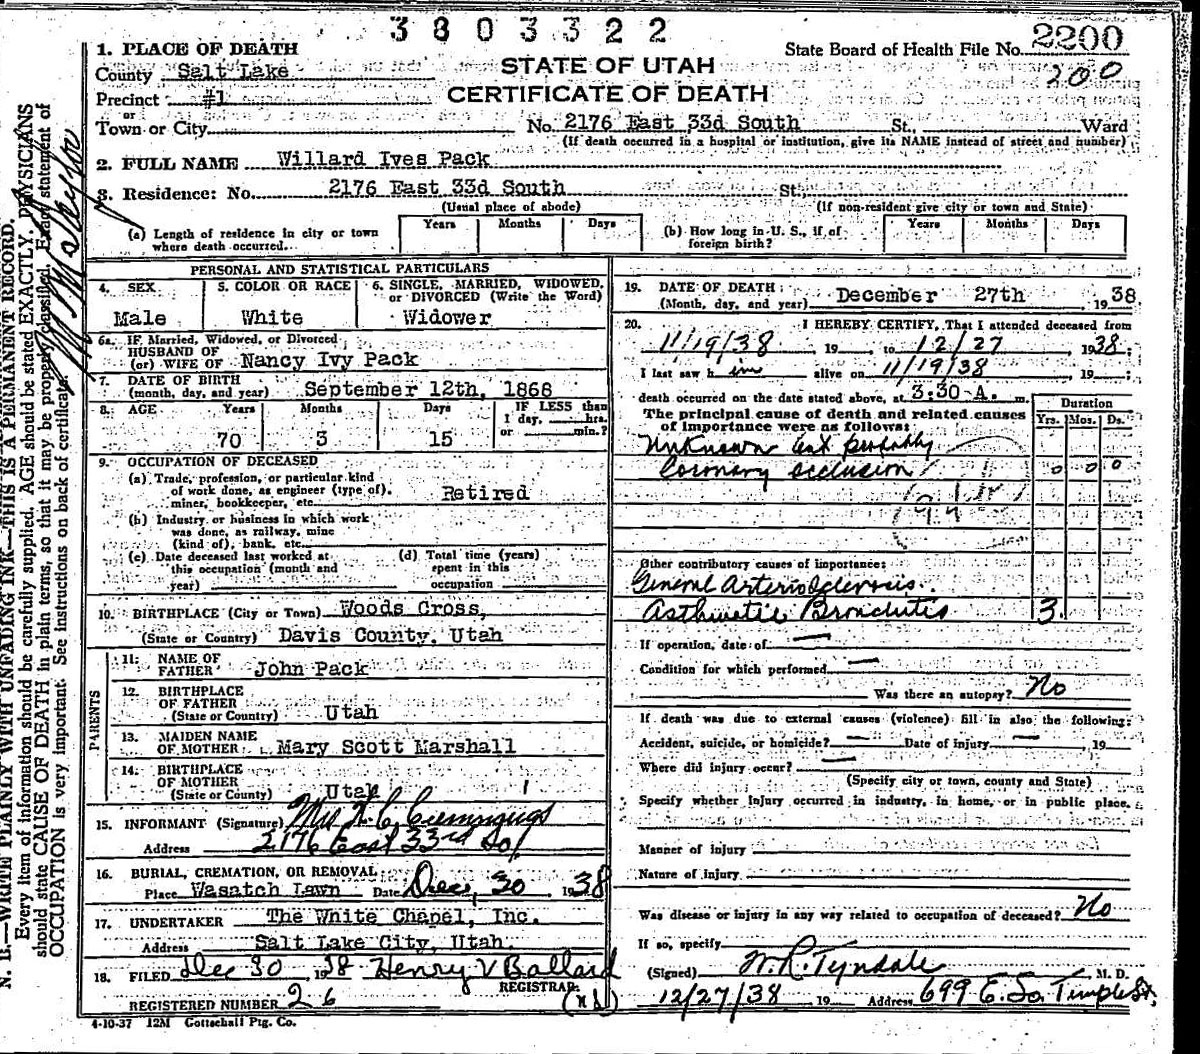 3803322
1. PLACE OF DEATH
State Board of Health File No. 2200
County Salt Lake
STATE OF UTAH
200
Precinct #1
CERTIFICATE OF DEATH
or
Town or City No. 2176 East 33d South St., Ward
(If death occurred in a hospital or institution, give its NAME instead of street and number)
2. FULL NAME Willard Ives Pack
3. Residence: No. 2176 East 33d South St.
(Usual place of abode) (If non-resident give city or town and State)
(a) Length of residence in city or town where death occurred. Years Months Days
(b) How long in U. S., if of foreign birth? Years Months Days
PERSONAL AND STATISTICAL PARTICULARS
4. SEX 5. COLOR OR RACE 6. SINGLE, MARRIED, WIDOWED, or DIVORCED (Write the Word)
Male White Widower
6a. If Married, Widowed, or Divorced
HUSBAND OF
(or) WIFE OF Nancy Ivy Pack
7. DATE OF BIRTH
(month, day, and year) September 12th, 1868
8. AGE Years Months Days IF LESS than 1 day, hrs. or min.?
70 3 15
9. OCCUPATION OF DECEASED
(a) Trade, profession, or particular kind
of work done, as engineer (type of),
miner, bookkeeper, etc. Retired
(b) Industry or business in which work
was done, as railway, mine
(kind of), bank, etc.
(c) Date deceased last worked at
this occupation (month and
year)
(d) Total time (years)
spent in this
occupation
10. BIRTHPLACE (City or Town) Woods Cross,
(State or Country) Davis County, Utah
PARENTS
11. NAME OF
FATHER John Pack
12. BIRTHPLACE
OF FATHER
(State or Country) Utah
13. MAIDEN NAME
OF MOTHER Mary Scott Marshall
14. BIRTHPLACE
OF MOTHER
(State or Country) Utah
15. INFORMANT (Signature) Mrs H. C. Cummings
Address 2176 East 33rd So.
16. BURIAL, CREMATION, OR REMOVAL
Place Wasatch Lawn Date Dec, 30 1938
17. UNDERTAKER The White Chapel, Inc.
Address Salt Lake City, Utah.
18. FILED Dec 30 1938 Henry V Ballard
REGISTRAR
REGISTERED NUMBER 26
4-10-37 12M Gottschall Ptg. Co.
19. DATE OF DEATH
(Month, day, and year) December 27th 1938
20. I HEREBY CERTIFY, That I attended deceased from
11/19/38 19 to 12/27 1938;
I last saw him alive on 11/19/38, 19 ;
death occurred on the date stated above, at 3:30 A. m.
The principal cause of death and related causes
of importance were as follows:
Duration
Yrs. Mos. Ds.
Unknown but probably
Coronary occlusion 0 0 0
Other contributory causes of importance:
General Arteriosclerosis.
Asthmatic Bronchitis 3.
If operation, date of —
Condition for which performed —
Was there an autopsy? No
If death was due to external causes (violence) fill in also the following:
Accident, suicide, or homicide? — Date of injury — , 19
Where did injury occur? —
(Specify city or town, county and State)
Specify whether injury occurred in industry, in home, or in public place.
Manner of injury
Nature of injury
Was disease or injury in any way related to occupation of deceased? No
If so, specify
(Signed) W. R. Tyndale M. D.
12/27/38 19 Address 699 E. So. Temple St.
N. B.—WRITE PLAINLY WITH UNFADING INK—THIS IS A PERMANENT RECORD.
Every item of information should be carefully supplied. AGE should be stated EXACTLY. PHYSICIANS
should state CAUSE OF DEATH in plain terms, so that it may be properly classified. Exact statement of
OCCUPATION is very important. See Instructions on back of certificate.